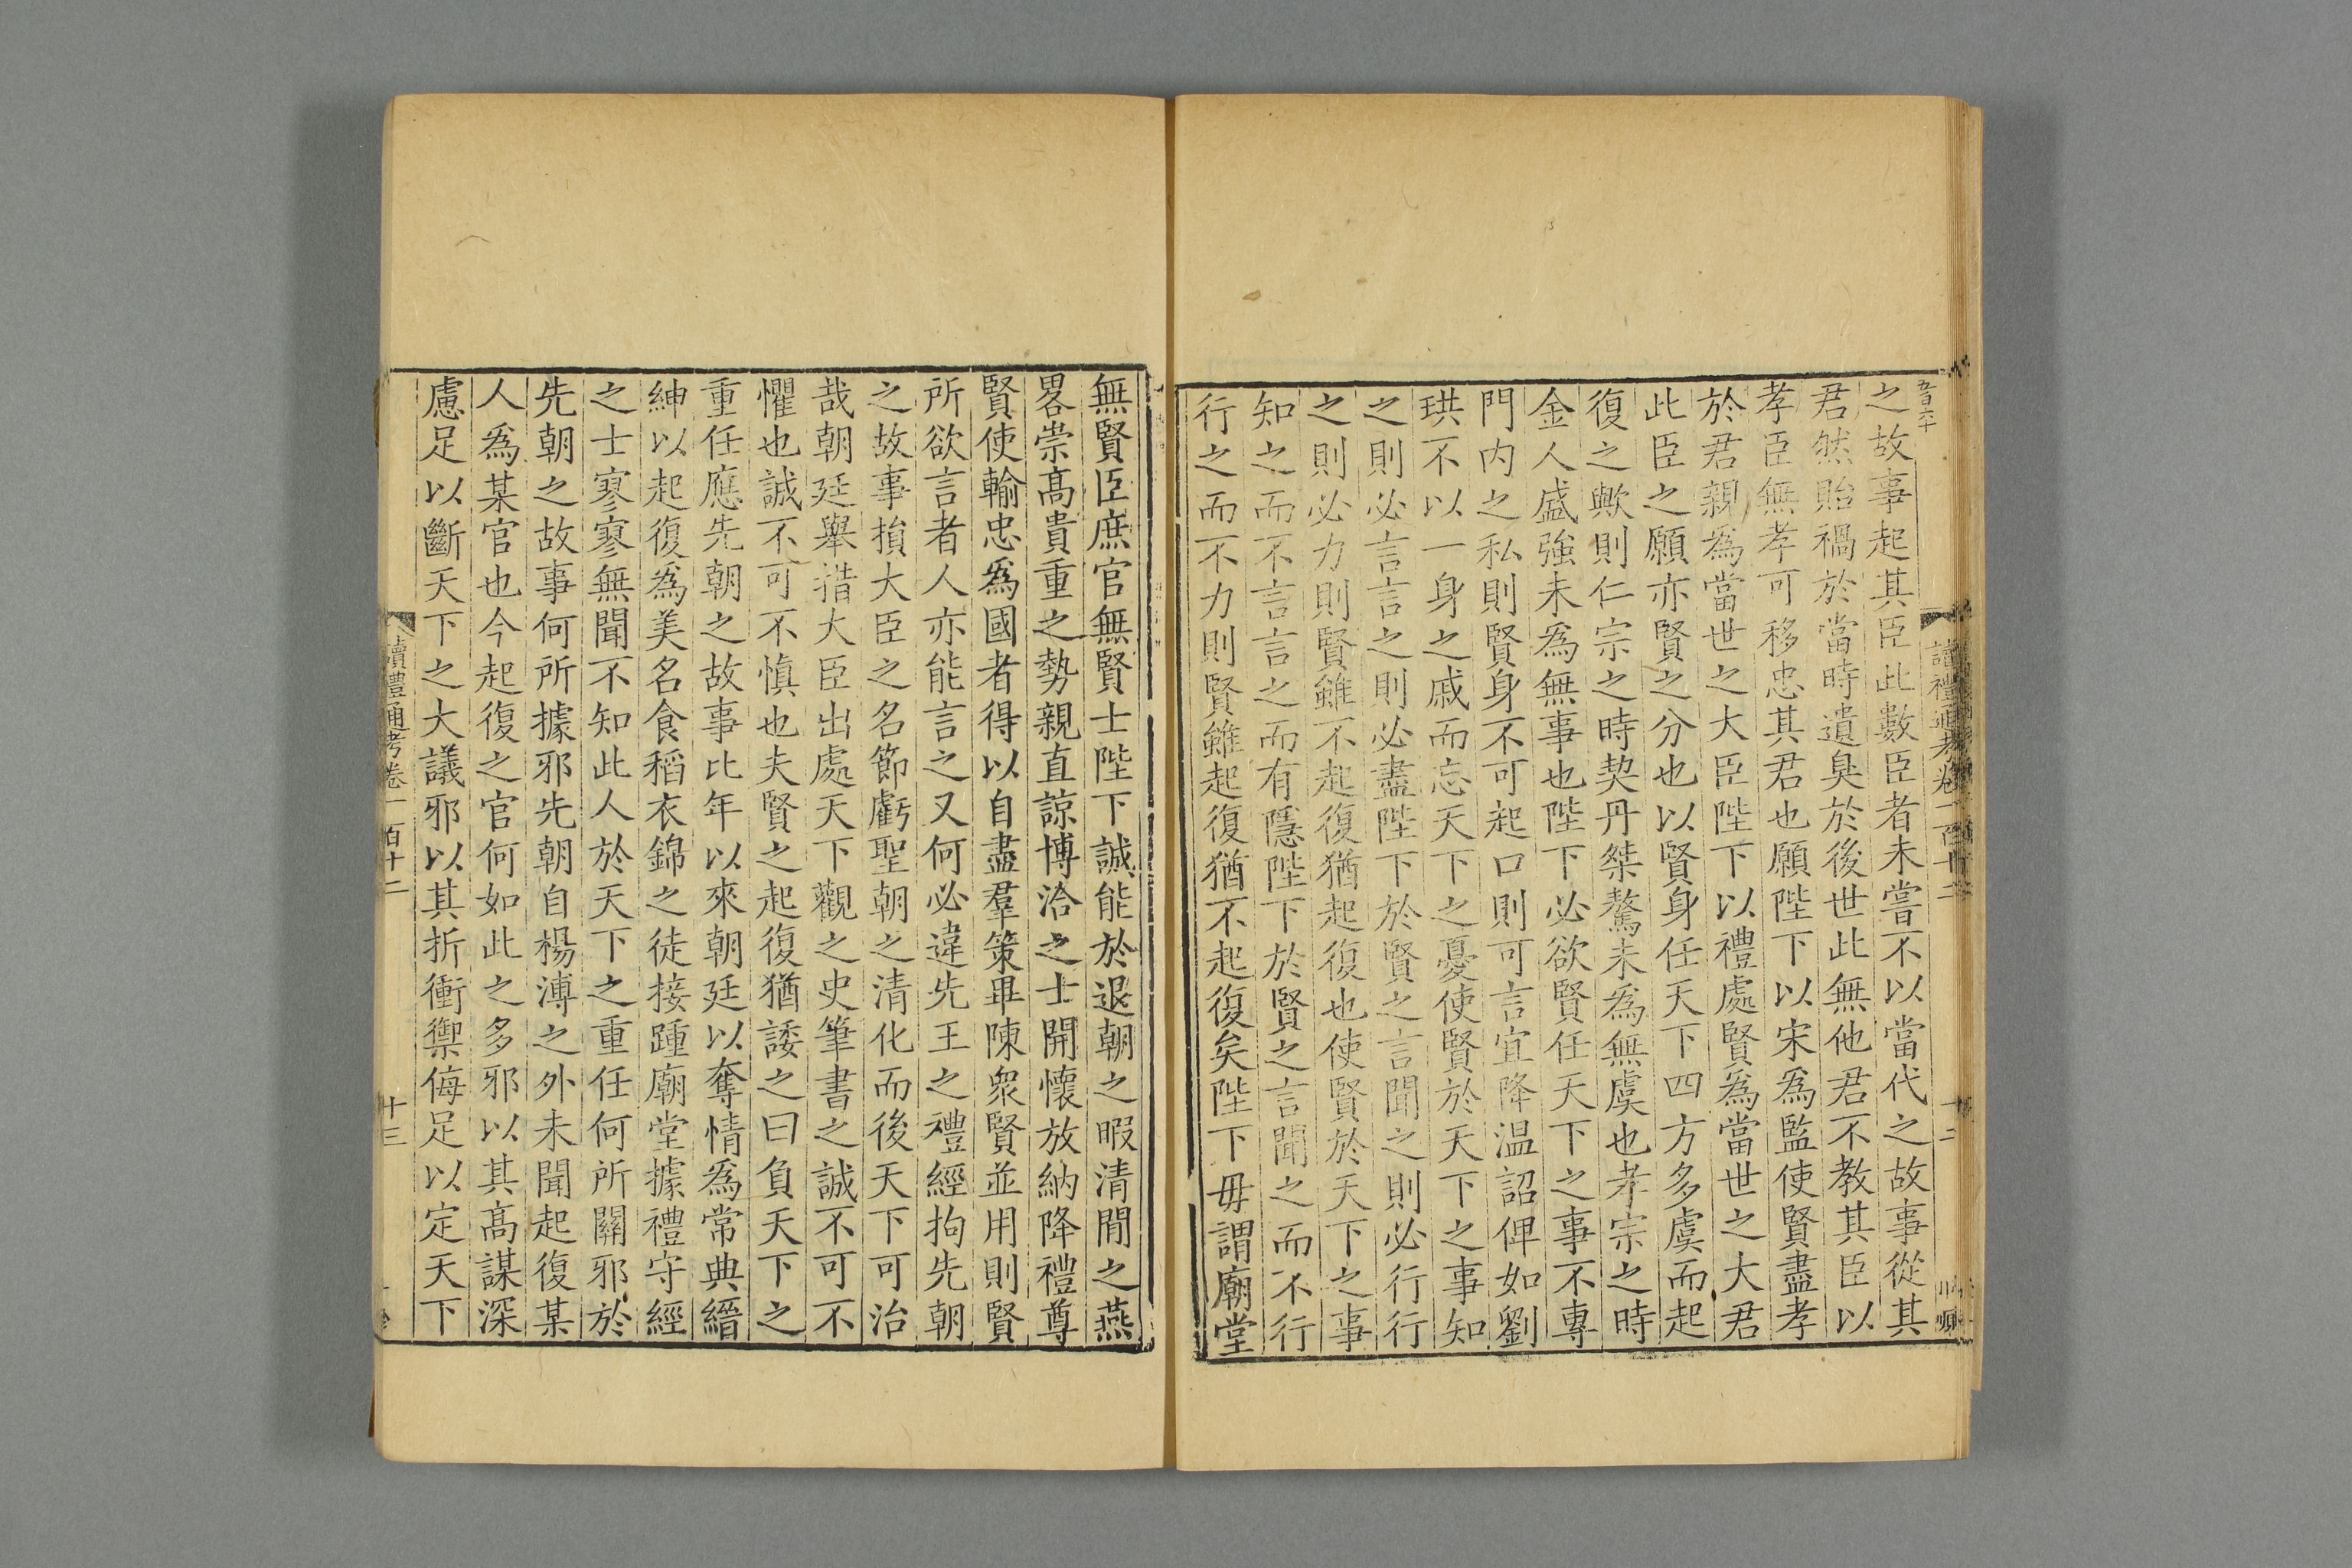 五百六十
讀禮通考卷一百十二
十二
之故事起其臣此數臣者未嘗不以當代之故事從其
君然貽禍於當時遺臭於後世此無他君不教其臣以
孝臣無孝可移忠其君也願陛下以宋爲監使賢盡孝
於君親爲當世之大臣陛下以禮處賢爲當世之大君
此臣之願亦賢之分也以賢身任天下四方多虞而起
復之歟則仁宗之時契丹桀驁未爲無虞也孝宗之時
金人盛強未爲無事也陛下必欲賢任天下之事不專
門内之私則賢身不可起口則可言宜降温詔俾如劉
珙不以一身之戚而忘天下之憂使賢於天下之事知
之則必言言之則必盡陛下於賢之言聞之則必行行
之則必力則賢雖不起復猶起復也使賢於天下之事
知之而不言言之而有隱陛下於賢之言聞之而不行
行之而不力則賢雖起復猶不起復矣陛下毋謂廟堂
無賢臣庶官無賢士陛下誠能於退朝之暇清閒之燕
畧崇髙貴重之勢親直諒博洽之士開懷放納降禮尊
賢使輸忠爲國者得以自盡羣策畢陳衆賢並用則賢
所欲言者人亦能言之又何必違先王之禮經拘先朝
之故事損大臣之名節虧聖朝之清化而後天下可治
哉朝廷舉措大臣出處天下觀之史筆書之誠不可不
懼也誠不可不愼也夫賢之起復猶諉之曰負天下之
重任應先朝之故事比年以來朝廷以奪情爲常典縉
紳以起復爲美名食稻衣錦之徒接踵廟堂據禮守經
之士寥寥無聞不知此人於天下之重任何所關邪於
先朝之故事何所據邪先朝自楊溥之外未聞起復某
人爲某官也今起復之官何如此之多邪以其髙謀深
慮足以斷天下之大議邪以其折衝禦侮足以定天下
讀禮通考卷一百十二
十三